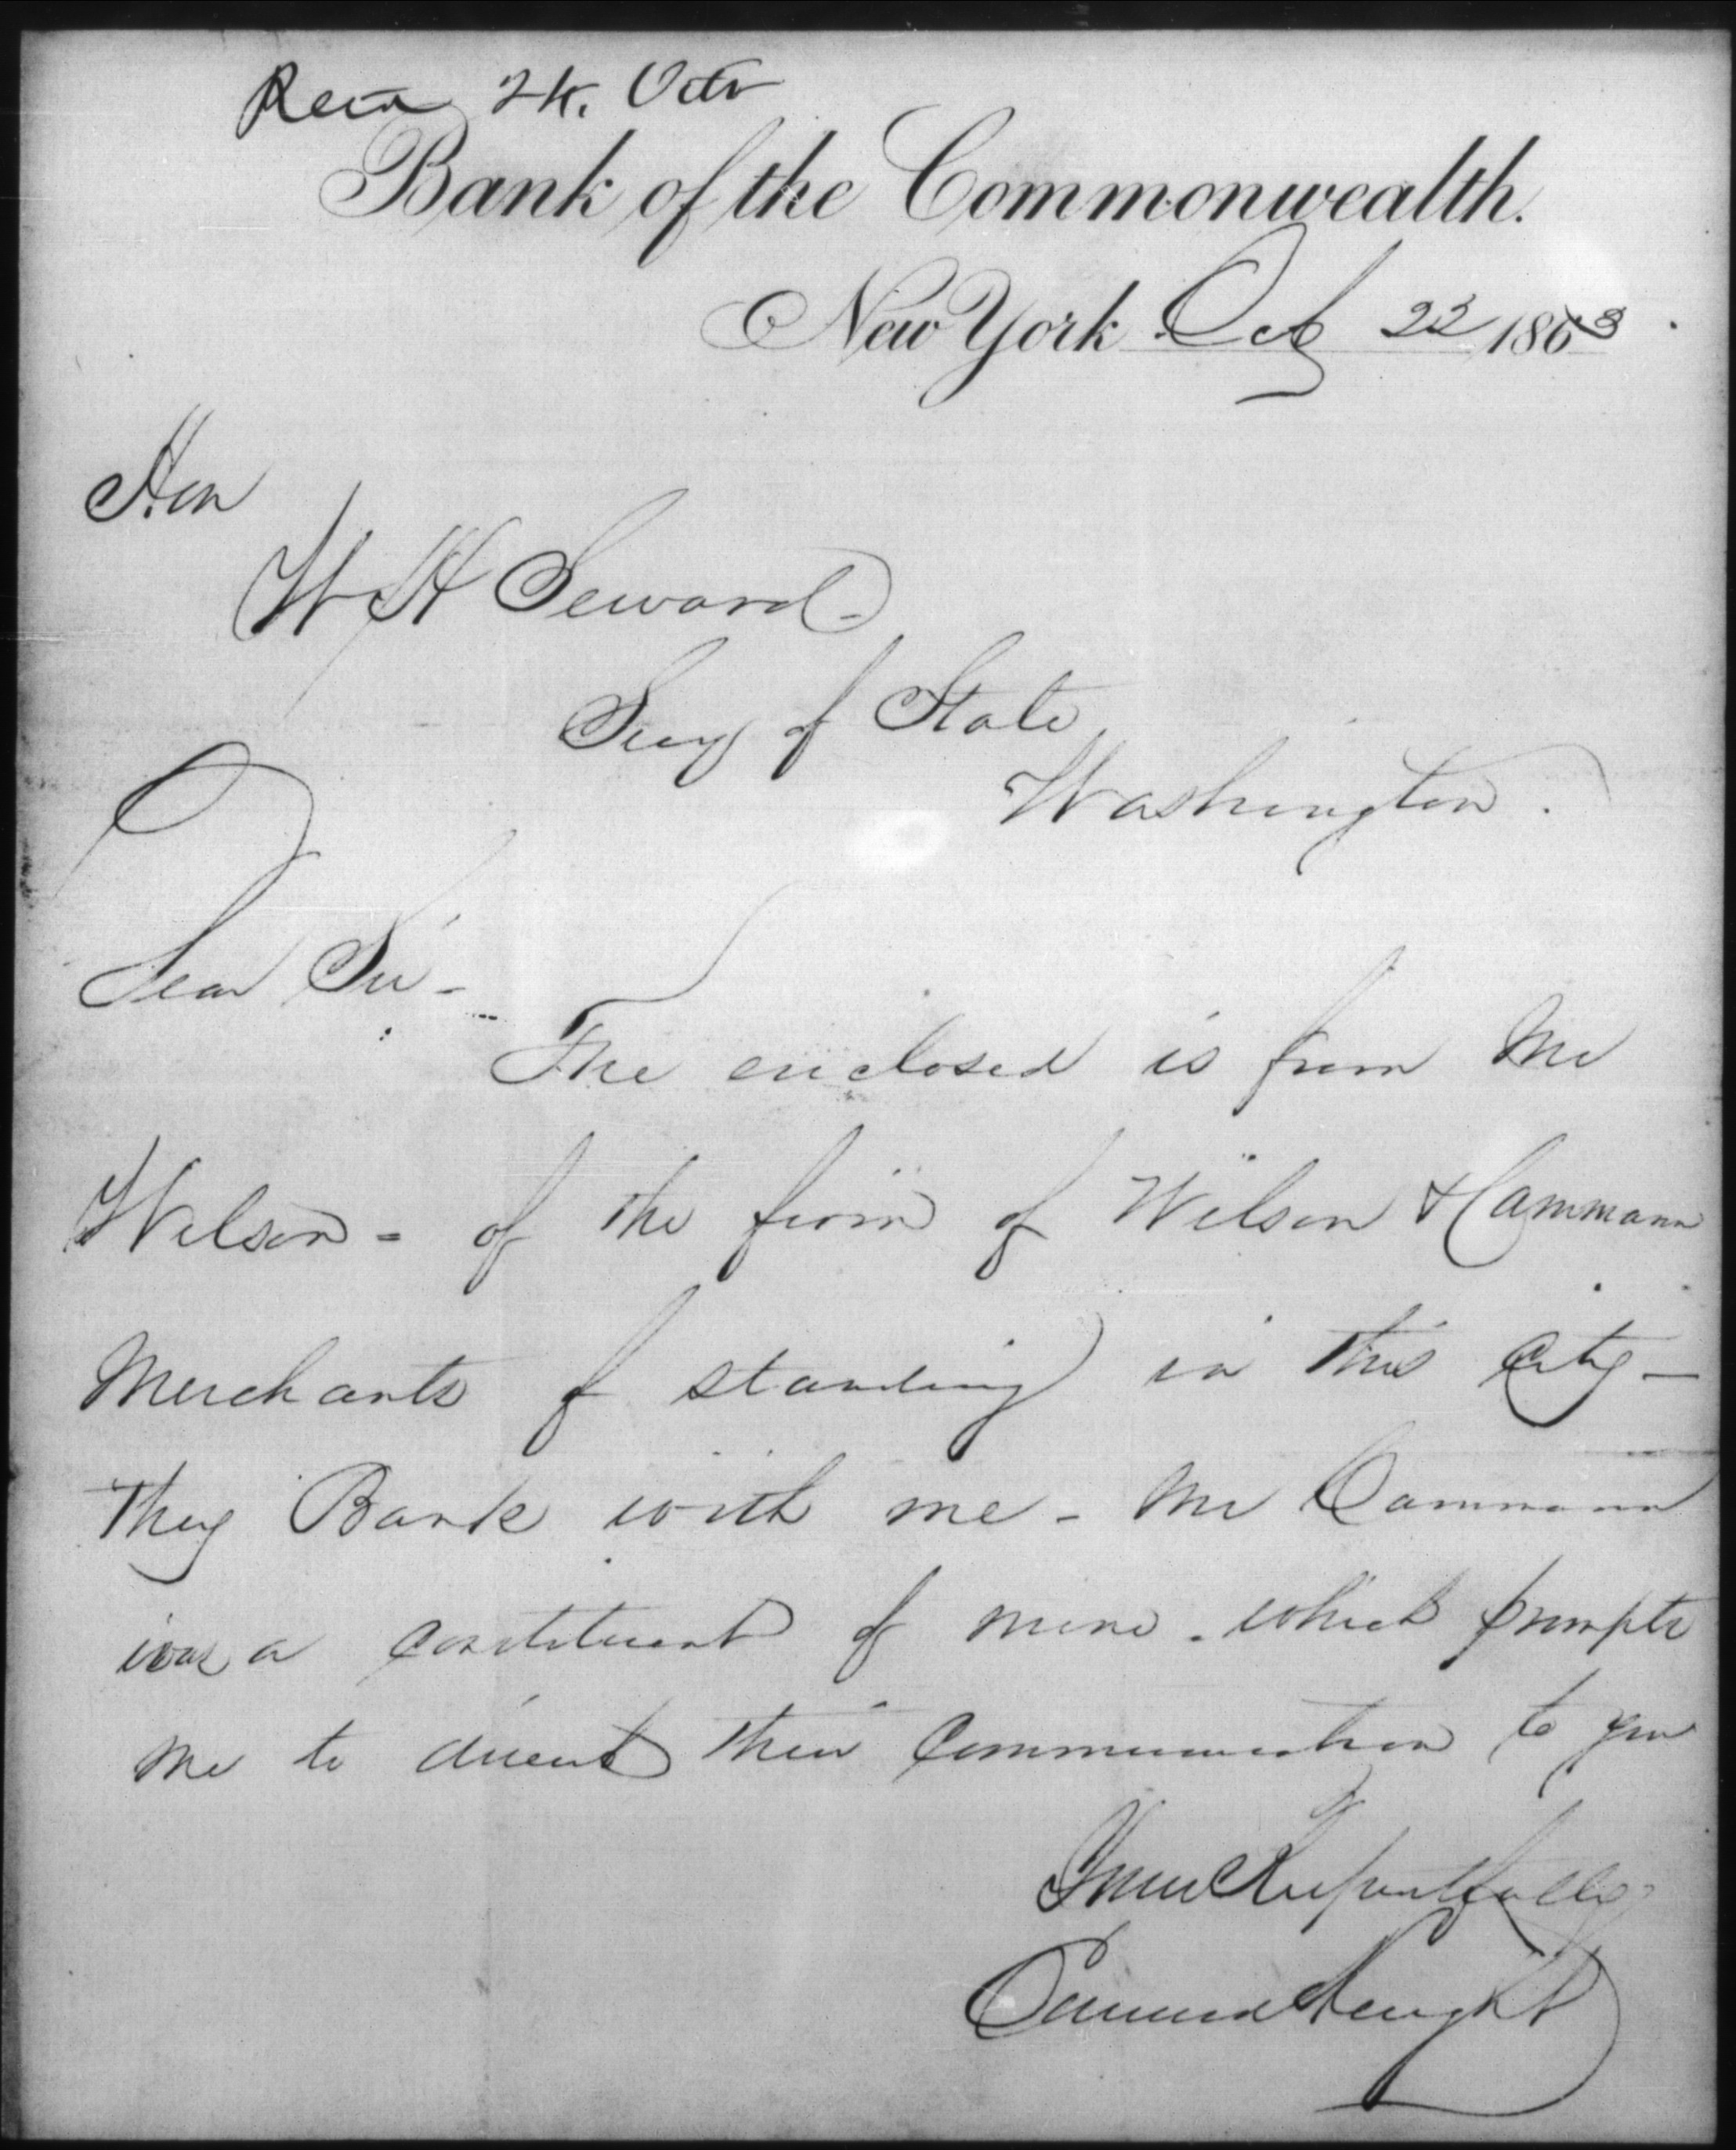 Recd 24. Octr
Bank of the Commonwealth.
New York Oct 22 1863
Hon
W H Seward
Secy of State
Washington.
Dear Sir -
The enclosed is from Mr
Wilson - of the firm of Wilson & Cammann
Merchants of standing in this City -
They Bank with me - Mr Cammann
was a constituent of mine - which prompts
me to direct their communication to you
Yours Respectfully
Edward Haight